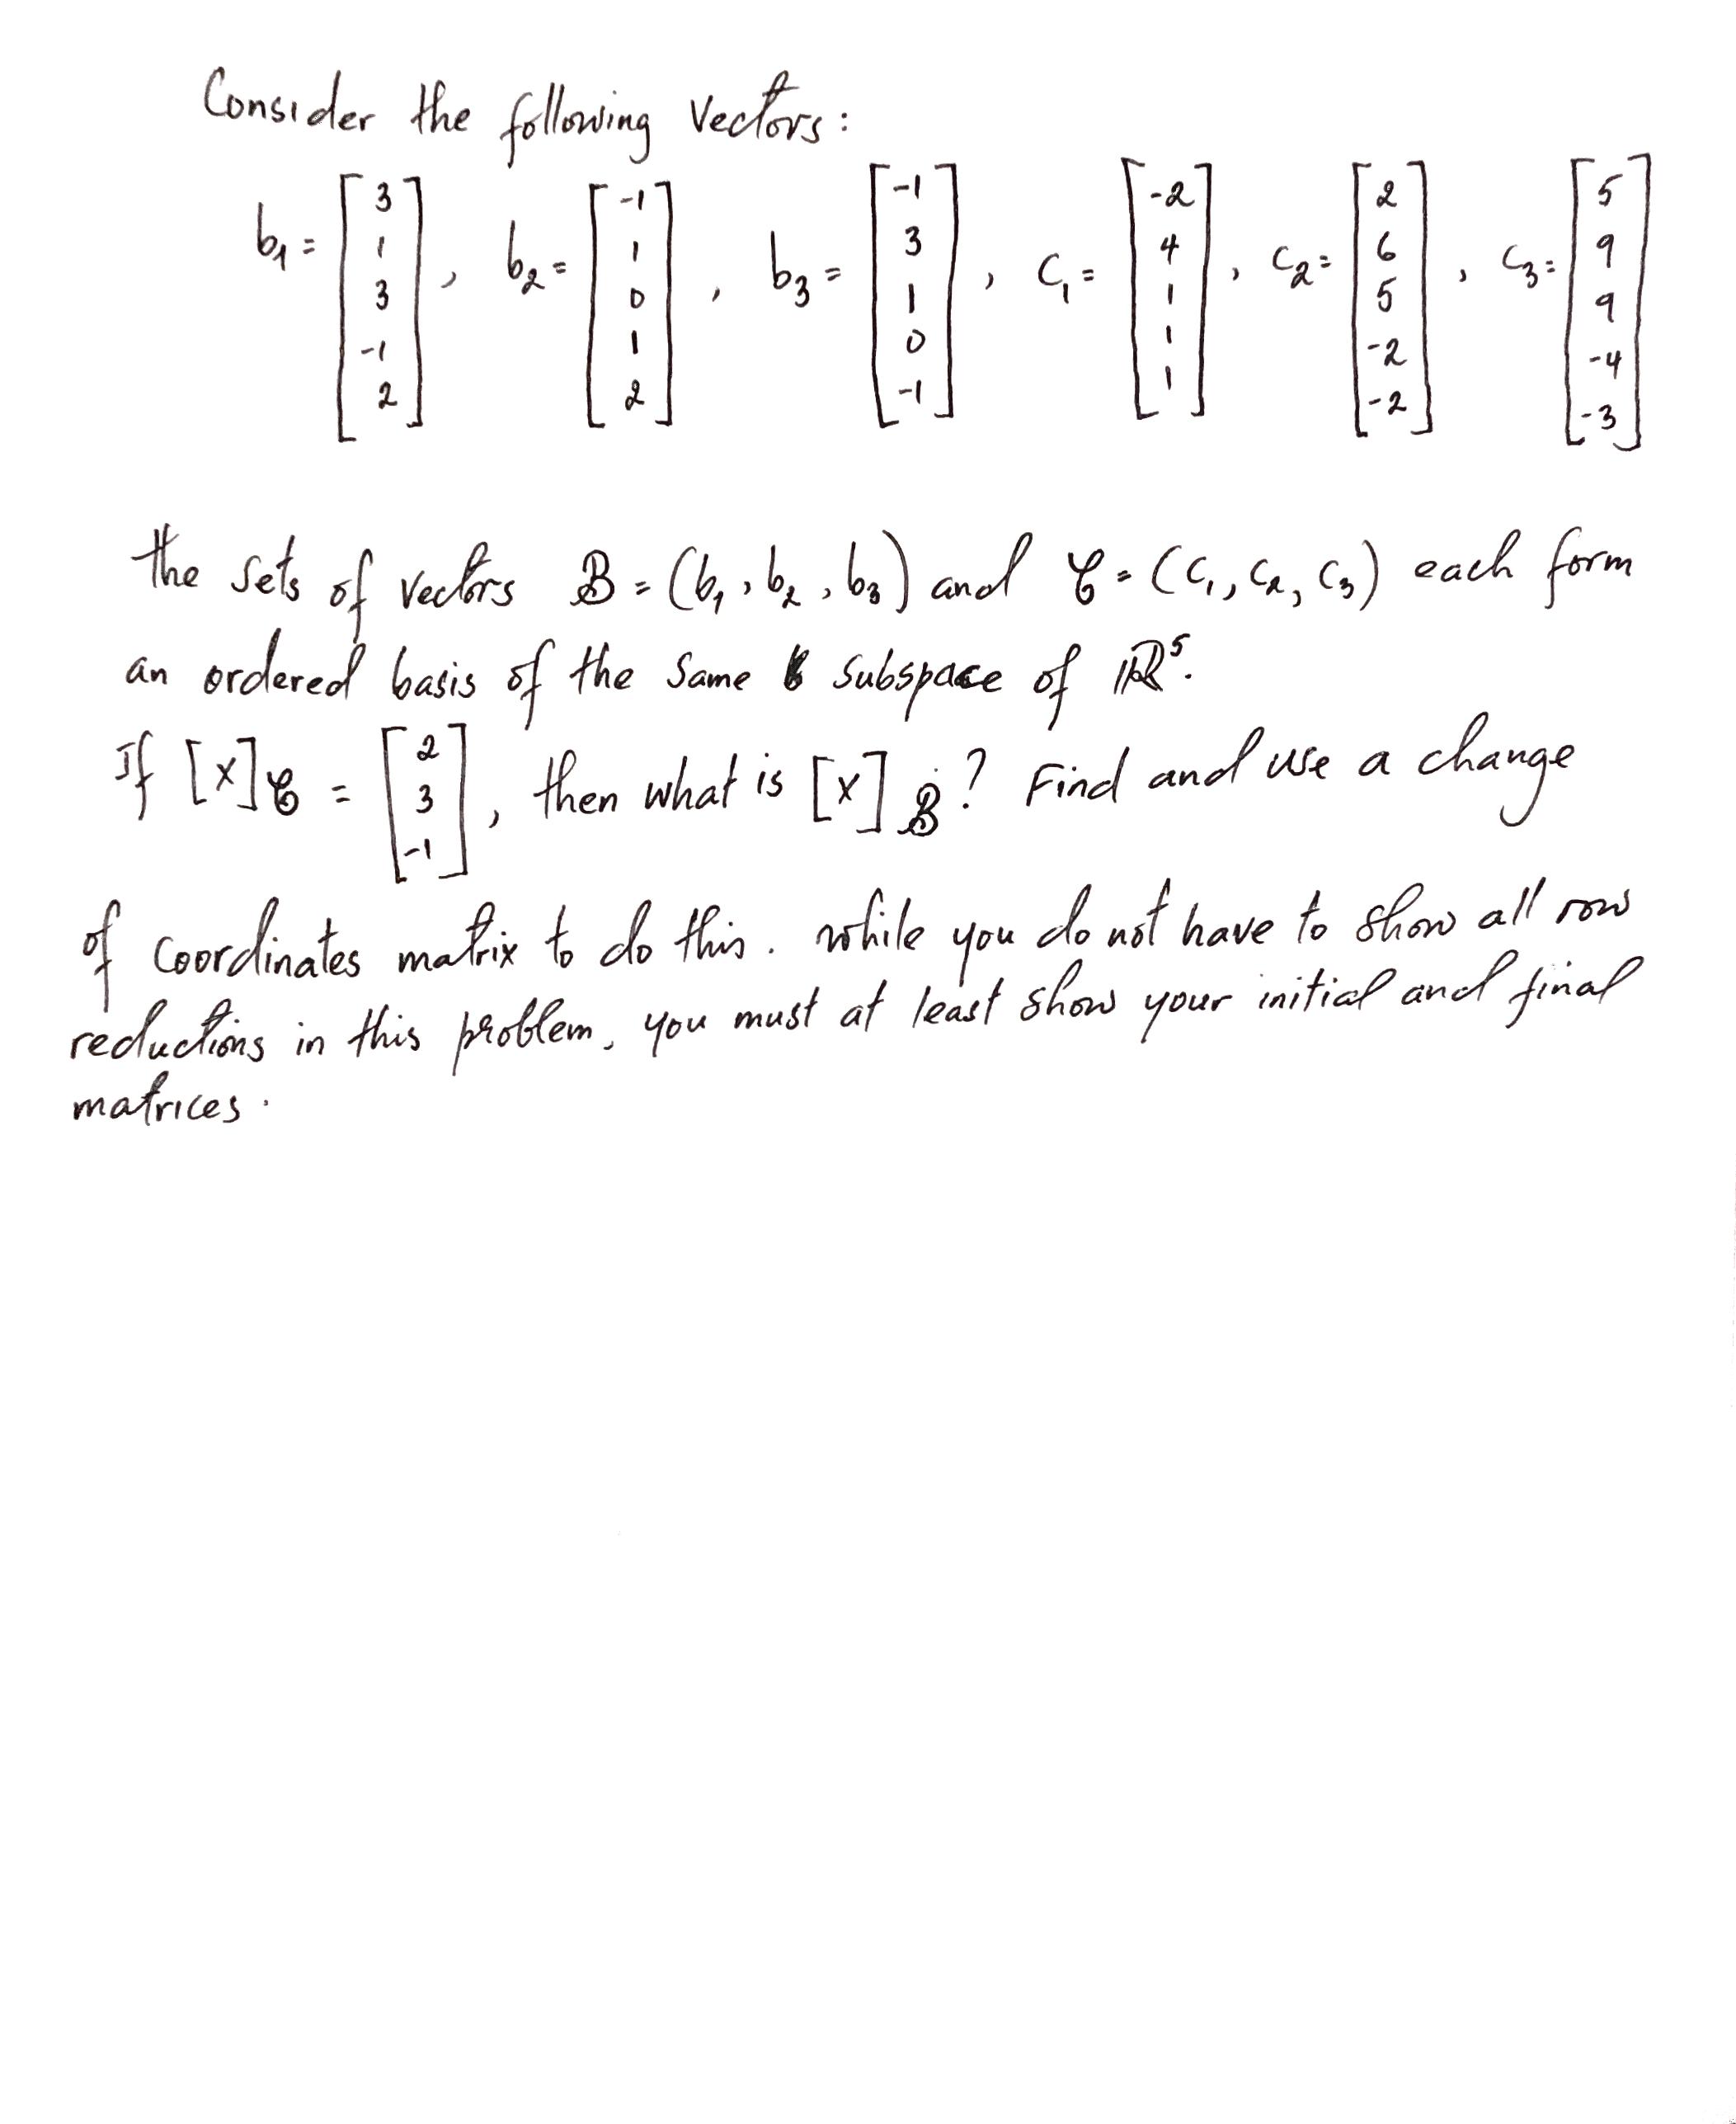 Consider the following vectors:
b₁ = [3 1 3 -1 2], b₂ = [-1 1 0 1 2], b₃ = [-1 3 1 0 -1], C₁ = [-2 4 1 1 1], C₂ = [2 6 5 -2 -2], C₃ = [5 9 9 -4 -3]
the sets of vectors B = (b₁, b₂, b₃) and C = (C₁, C₂, C₃) each form
an ordered basis of the same subspace of ℝ⁵.
If [x]C = [2 3 -1], then what is [x]B? Find and use a change
of coordinates matrix to do this. while you do not have to show all row
reductions in this problem, you must at least show your initial and final
matrices.